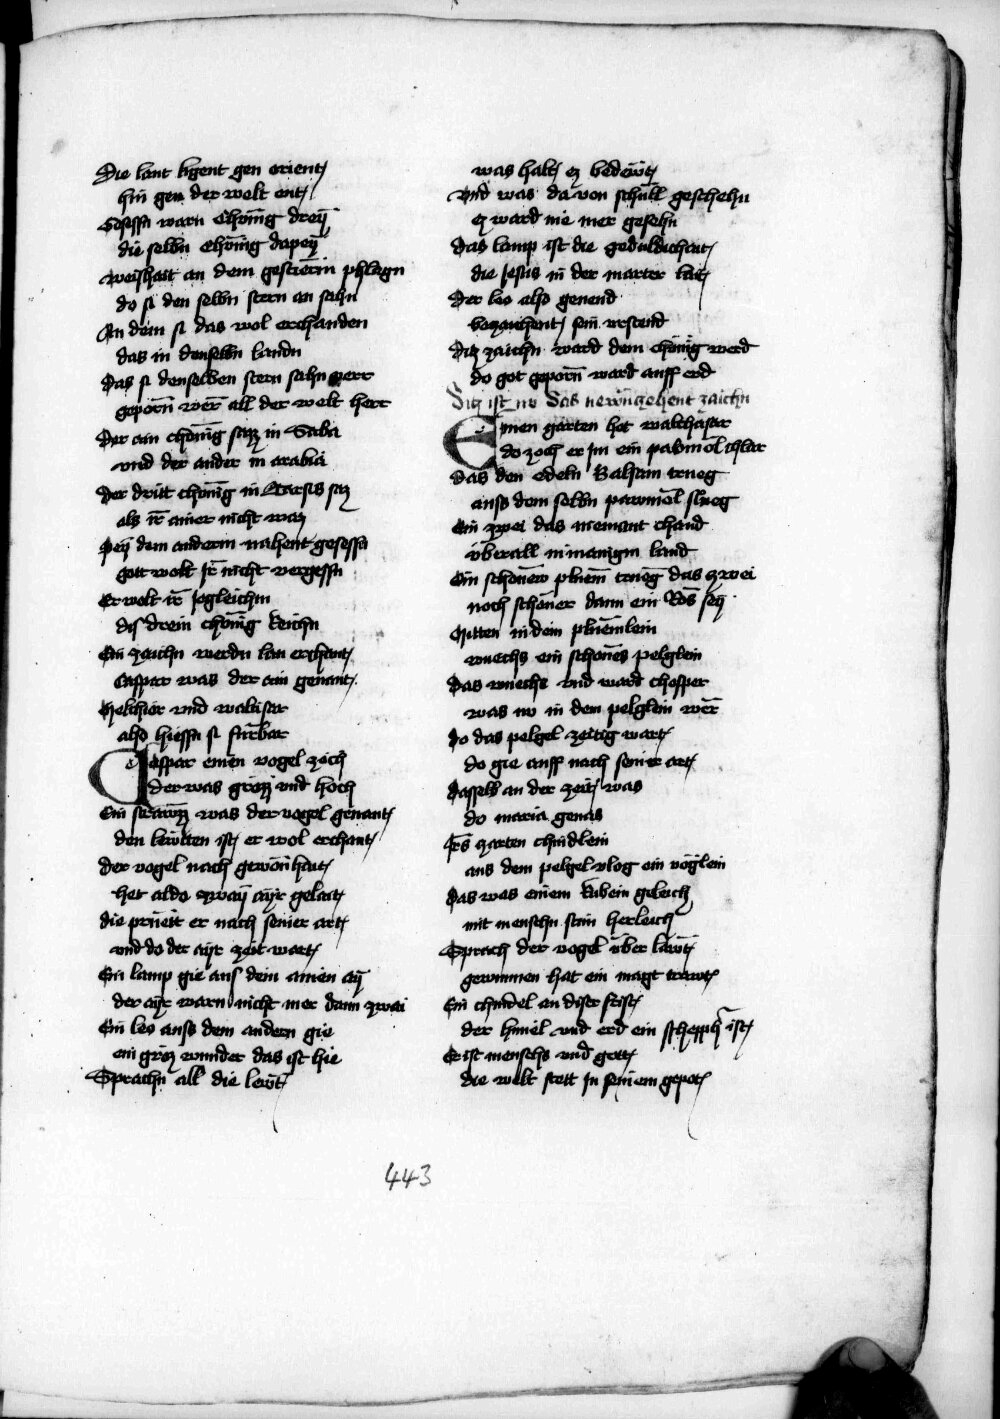 Die lant ligent gen orient
hin gen der welt ent
Gesessn warn chönig dreÿ
die selbn chönig dapeÿ
Weishait an dem gestiern phlegn
do si den selbn stern an sahn
An dem si das wol erchanden
das in denselbn landn
Das si denselben stern sahn verr
geporn wer all der welt herr
Der ain chönig sazz in Saba
vnd der ander in arabia
Der dritt chönig in Tarsis saz
als ir ainer nicht waz
Peÿ dem anderm nahent gesessn
gott wolt Ir nicht vergessn
Er wolt ir Iegleichm
dis drein chönig Reichn
Ein zaichn werdn lan erchant
Caspar was der ain genant
Melchior vnd waltisar
also hiessn si fürbar
Caspar einen vogel zoch
der was grozz vnd hoch
Ein strawzz was der vogel genant
den lewten ist er wol erchant
der vogel nach gewonhait
het aldo zwaÿ aÿr gelait
die prueit er nach seiner art
vnd do der aÿr zeit wart
Ein lamp gie aus dem ainen aÿ
der aÿr warn nicht mer dann zwai
Ein leo auss dem andern gie
ein groz wunder das ist hie
Sprachn all die lewt
was halt ez bedewt
Vnd was da von schüll geschehn
ez ward nie mer gesehn
Das lamp ist die geduldichait
die Jesus in der marter lait
Der leo also genend
bezaichent sein vrstend
Diz zaichn ward dem chönig werd
do got geporn ward auff erd
Ditz ist nw das newnzehent zaichn
Einen garten het walthasar
do zoch er Im ein pawmöl
Das den edeln Balsam trueg
auss dem selbn pawmöl slueg
Ein zwei das niemant chand
überall in manigm land
Ein schönew pluem trueg das zwei
noch schöner dann ein Ros seÿ
Mitten in dem pluemlein
wuechs ein schönes pelglein
Das wuechs vnd ward chosper
was nw in dem pelglein wer
Do das pelgel zeitig wart
do gie auff nach seiner art
dasselb an der zeit was
do maria genas
Irs zarten chindlein
aus dem pelgel vlog ein vöglein
das was einem Rubein geleich
mit menschn stim herleich
Sprach der vogel über lawt
gewunnen hat ein magt trawt
Ein chindel an diser frist
der himel vnd erd ein scheppher ist
Er ist mensch vnd gott
die welt stett in seinem gepot
443